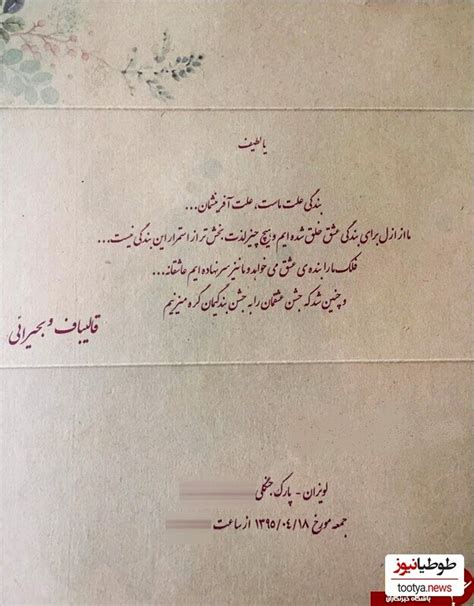 یا لطیف
بندگی علت ماست، علت آفرینشمان...
ما از ازل برای بندگی عشق خلق شده ایم و هیچ چیز لذت بخش تر از استمرار این بندگی نیست...
فلک ما را بنده ی عشق می خواهد و ما نیز سر نهاده ایم عاشقانه...
و چنین شد که جشن عشقمان را به جشن بندگیمان گره میزنیم
قالیباف و بحیرائی
لویزان - پارک جنگلی
جمعه مورخ ۱۳۹۵/۰۴/۱۸ از ساعت
طوطیانیوز
tootya.news